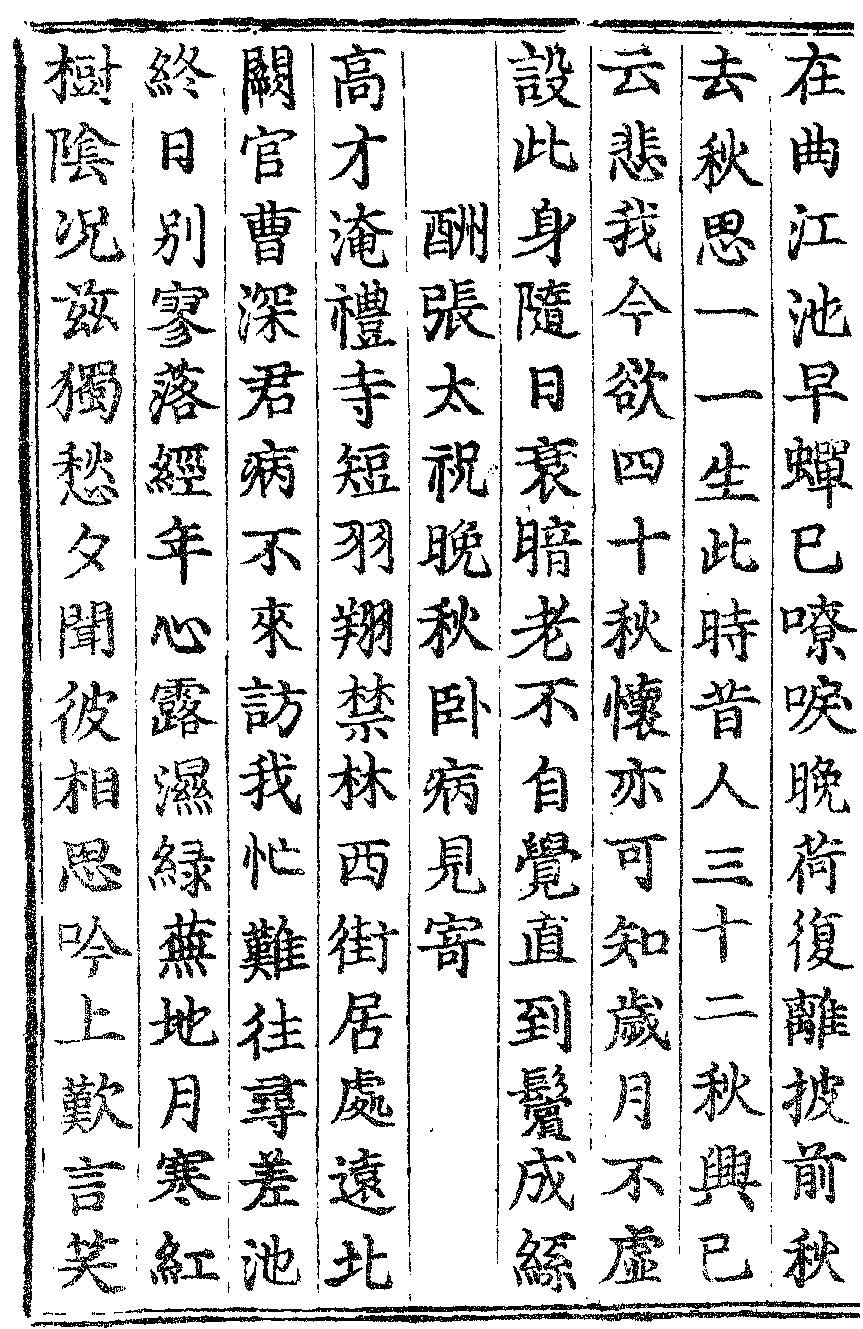 在曲江池早蟬已嘹唳晚荷復離披前秋
去秋思一一生此時昔人三十二秋興已
云悲我今欲四十秋懷亦可知歲月不虛
設此身隨日衰暗老不自覺直到鬢成絲
酬張太祝晚秋卧病見寄
高才淹禮寺短羽翔禁林西街居處遠北
闕官曹深君病不來訪我忙難往尋差池
終日別寥落經年心露濕綠蕪地月寒紅
樹陰况兹獨愁夕聞彼相思吟上歎言笑